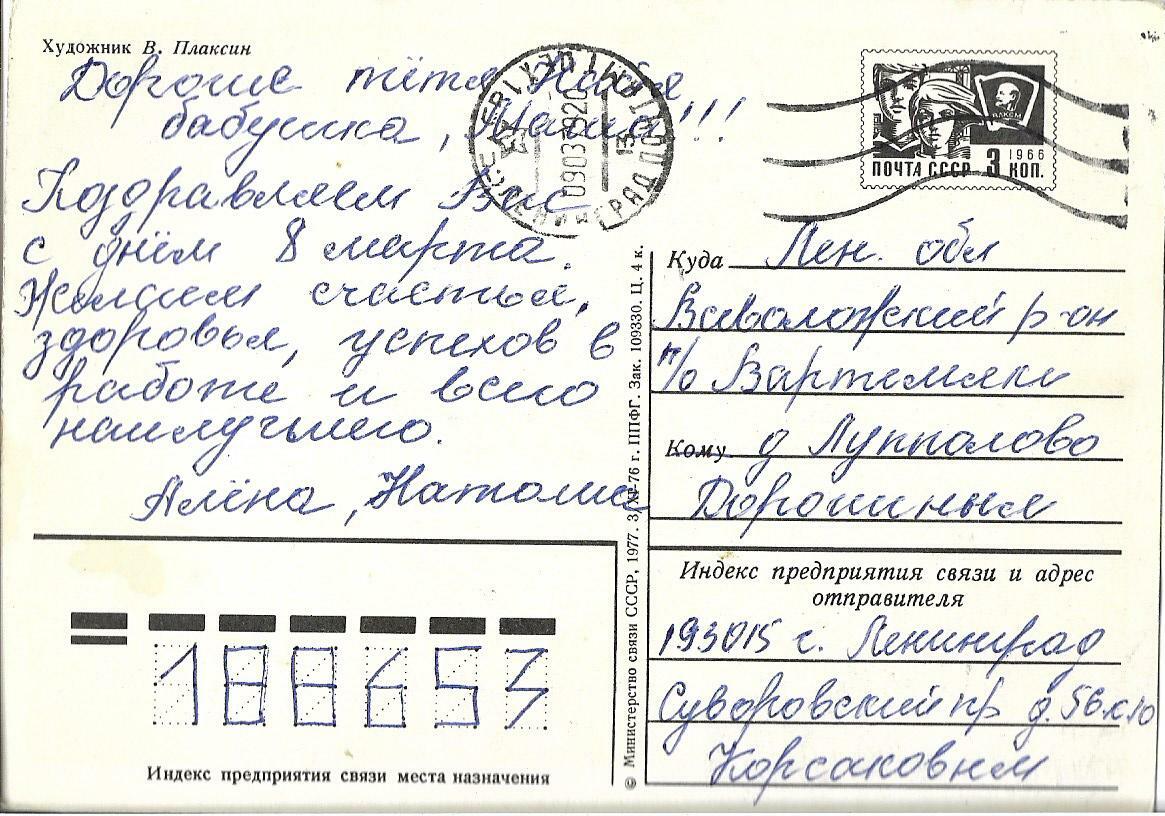 Художник В. Плаксин
Дорогие тётя Надя,
бабушка, Маша!!!
Поздравляем Вас
с днём 8 марта.
Желаем счастья,
здоровья, успехов в
работе и всего
наилучшего.
Алёна, Наташа
ЛЕНИНГРАД ПОЧТАМТ
090392
13
ВЛКСМ
1966
ПОЧТА СССР 3 КОП.
Куда Лен. обл
Всеволожский р-он
п/о Вартемяки
Кому д Лупполово
Дорониным
Индекс предприятия связи и адрес
отправителя
193015 г. Ленинград
Суворовский пр д. 56 к 10
Корсаковым
© Министерство связи СССР, 1977. 3/XI-76 г. ППФГ. Зак. 109330. Ц. 4 к.
188653
Индекс предприятия связи места назначения